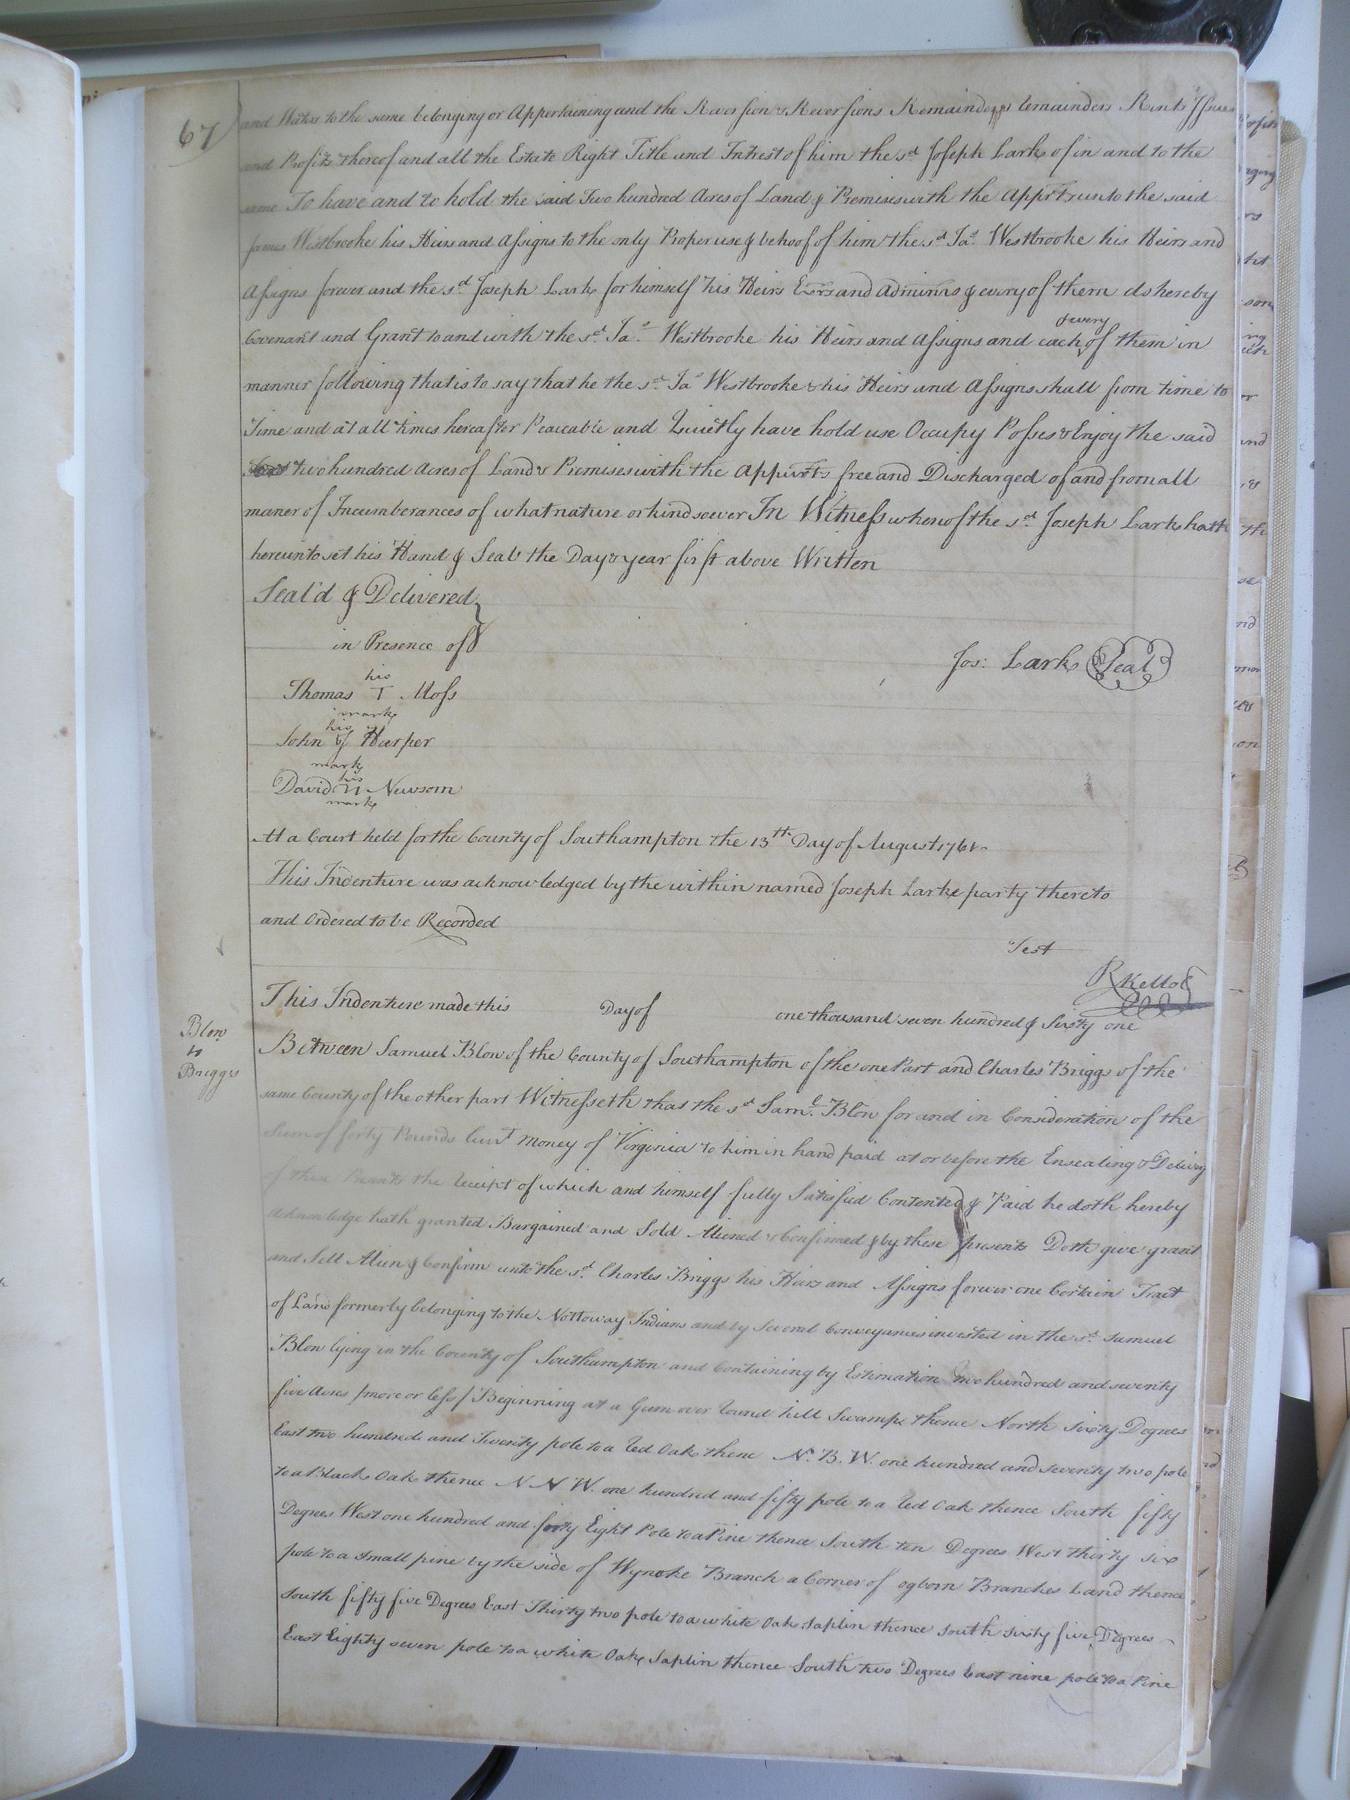 67
and Waters to the same belonging or Appertaining and the Reversion & Reversions Remainder & remainders Rents Issues
and Profits thereof and all the Estate Right Title and Intrest of him the sd Joseph Lark of in and to the
same To have and to hold the said Two hundred Acres of Land & Premises with the Appurts unto the said
James Westbrooke his Heirs and Assigns to the only Proper use & behoof of him the sd Jas Westbrooke his Heirs and
Assigns forever and the sd Joseph Lark for himself his Heirs Exrs and Adminrs & every of them do hereby
Covenant and Grant to and with the sd Jas Westbrooke his Heirs and Assigns and each & every of them in
manner following that is to say that he the sd Jas Westbrooke & his Heirs and Assigns shall from time to
Time and at all times hereafter Peaceable and Quietly have hold use Occupy Posses & Enjoy the said
two hundred Acres of Land & Premises with the appurts free and Discharged of and from all
maner of Incumberances of what nature or kind soever In Witness whereof the sd Joseph Lark hath
hereunto set his Hand & Seal the Day & year first above Written
Seal'd & Delivered
in Presence of
Jos: Lark Seal
his
Thomas T Moss
mark
his
John Harper
mark
his
David N Newsom
mark
At a Court held for the County of Southampton the 13th Day of August 1761
This Indenture was acknowledged by the within named Joseph Lark party thereto
and Ordered to be Recorded
Test
R Kello C
Blow
to
Briggs
This Indenture made this Day of one thousand seven hundred & Sixty one
Between Samuel Blow of the County of Southampton of the one Part and Charles Briggs of the
same County of the other part Witnesseth that the sd Saml. Blow for and in Consideration of the
Sum of forty Pounds Curt Money of Virginia to him in hand paid at or before the Ensealing & Delivery
of these Presents the receipt of which and himself fully Satisfied Contented & Paid he doth hereby
Acknowledge hath granted Bargained and Sold Aliened & Confirmed & by these presents Doth give grant
and Sell Alien & Confirm unto the sd. Charles Briggs his Heirs and Assigns forever one Certain Tract
of Land formerly belonging to the Nottoway Indians and by Several Conveyances invested in the sd Samuel
Blow lying in the County of Southampton and Containing by Estimation two hundred and seventy
five Acres more or less Beginning at a Gum over round hill Swamp thence North Sixty Degrees
East two hundred and Twenty pole to a red Oak thence N. B. W. one hundred and seventy two pole
to a Black Oak thence N N W. one hundred and fifty pole to a red Oak thence South fifty
Degrees West one hundred and forty Eight Pole to a Pine thence South ten Degrees West thirty six
pole to a small pine by the side of Wynoke Branch a Corner of ogborn Branches Land thence
South fifty five Degrees East Thirty two pole to a white Oak Saplin thence South Sixty five Degrees
East Eighty seven pole to a white Oak Saplin thence South two Degrees East nine pole to a Pine